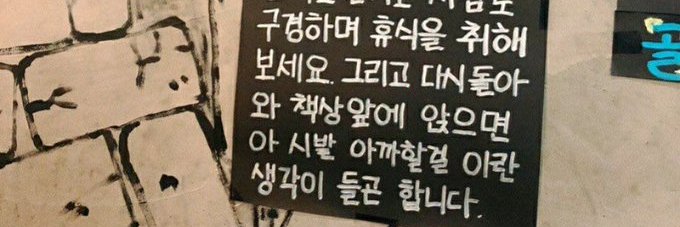 구경하며 휴식을 취해
보세요. 그리고 다시 돌아
와 책상 앞에 앉으면
아 시발 아까할걸 이란
생각이 들곤 합니다.